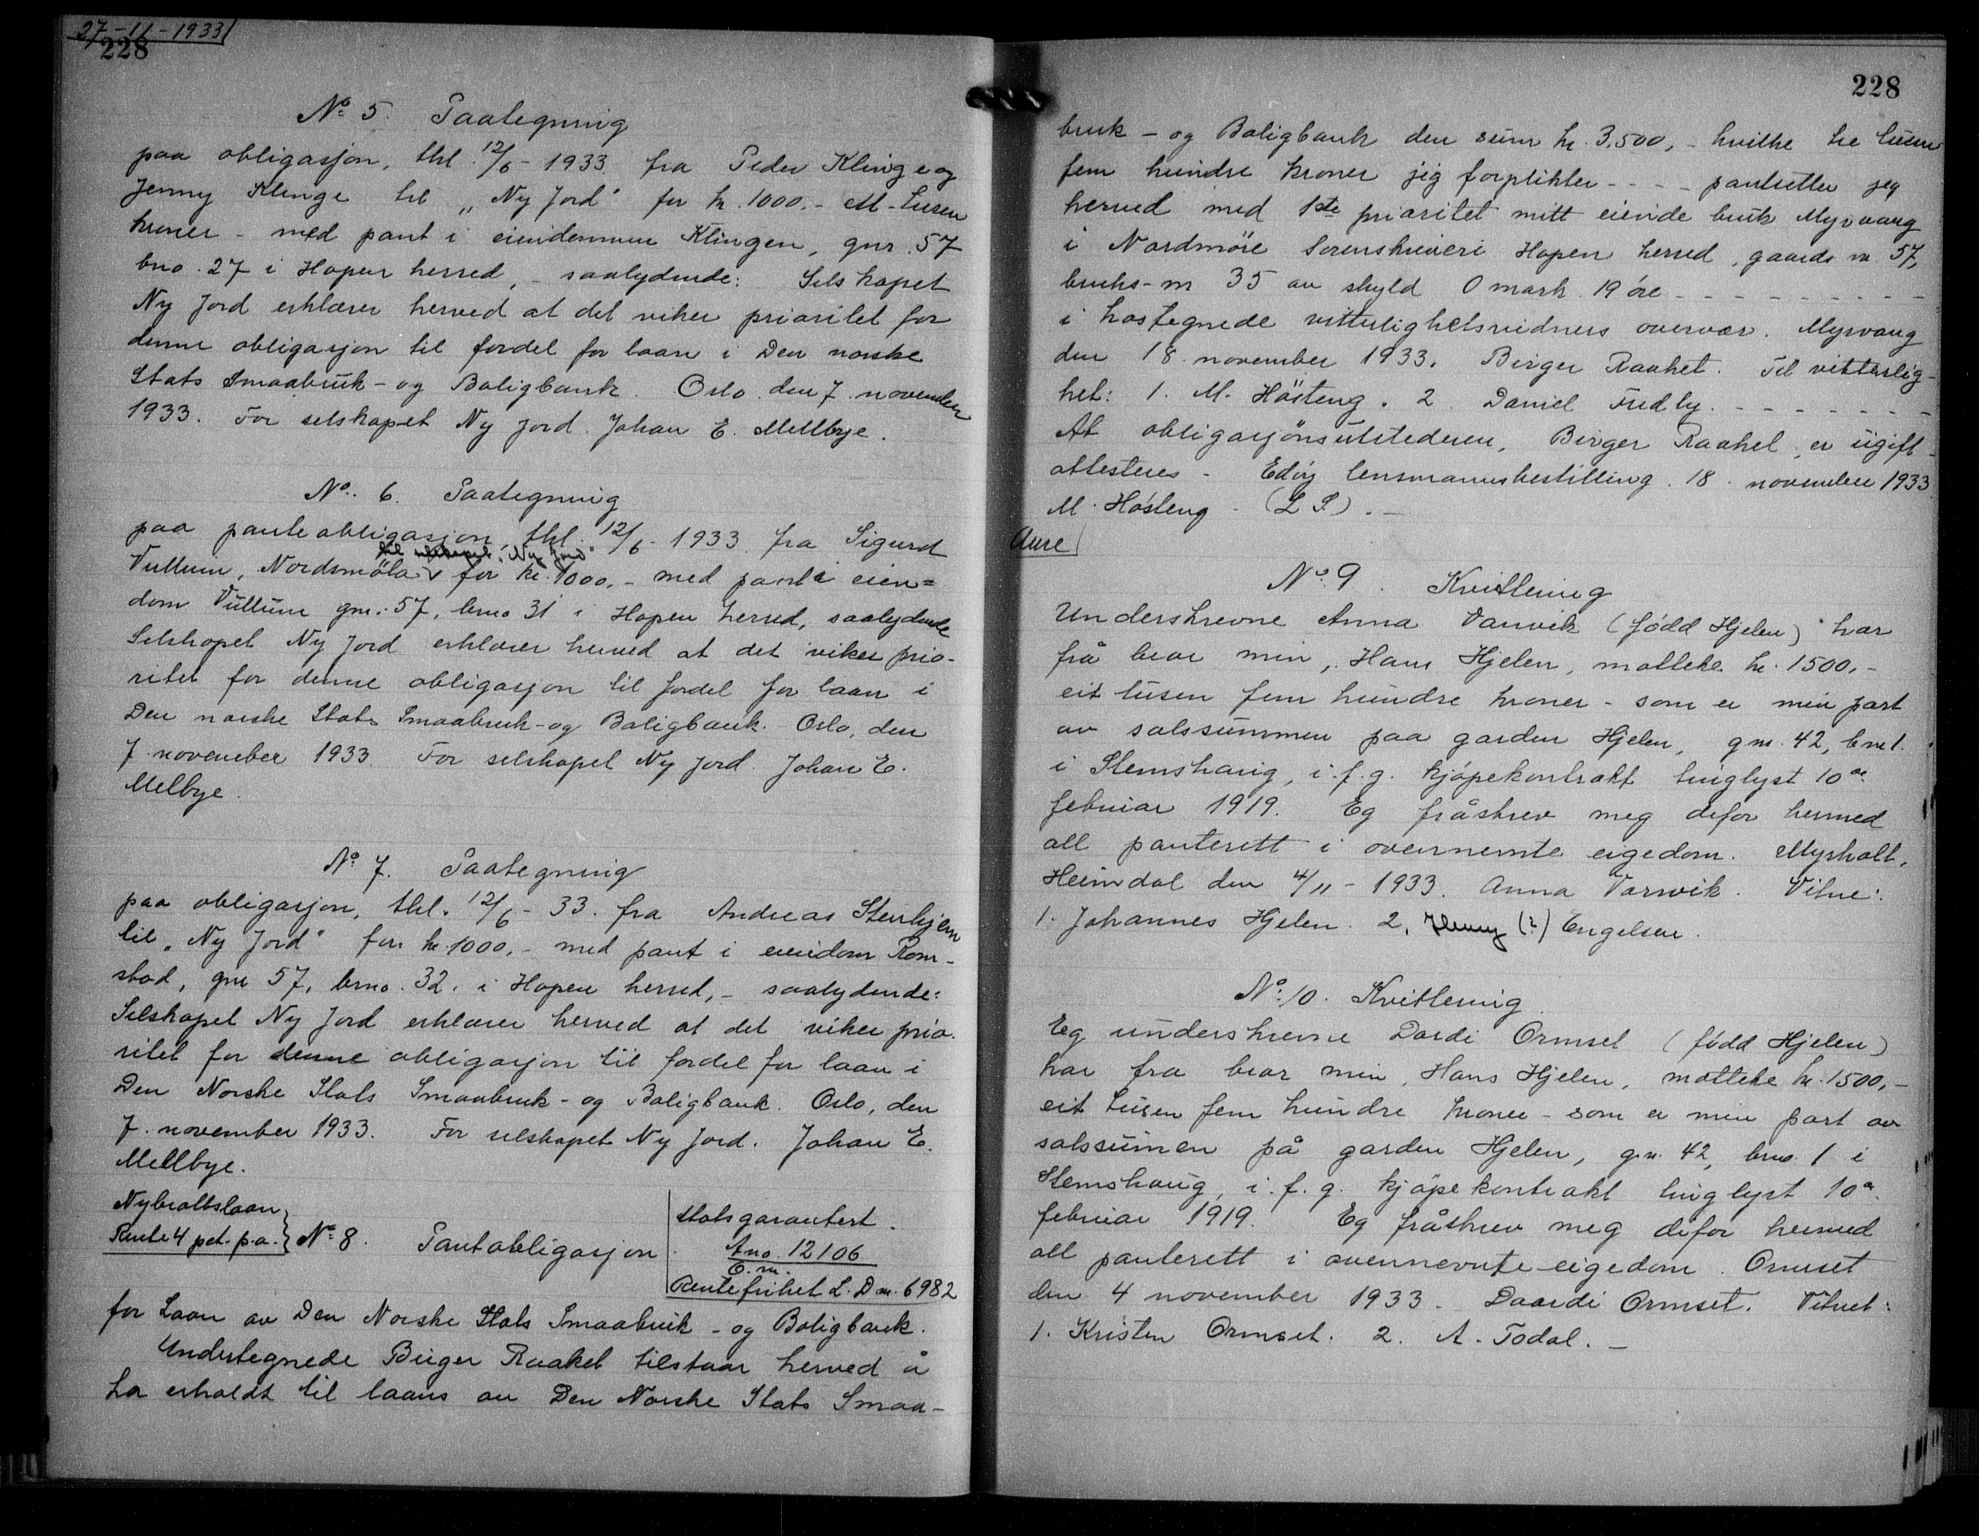 27-11-1933
228
No 5. Paategning
paa obligasjon, tkl. 12/6 - 1933 fra Peder Klinge og
Jenny Klinge til „Ny Jord" for kr. 1000.- ett-tusen
kroner - med pant i eiendommen Klingen, gnr. 57
bno. 27 i Hopen herred, - saalydende: Selskapet
Ny Jord erklærer herved at det viker prioritet for
denne obligasjon til fordel for laan i Den norske
Stats Smaabruk- og Boligbank. Oslo den 7. november
1933. For selskapet Ny Jord. Johan E. Mellbye.
No. 6. Paategning
paa panteobligasjon tkl. 12/6 - 1933 fra Sigurd
til selskapet "Ny Jord"
Vullum, Nordsmöla for kr. 1000.- med pant i eien=
dom Vullum gnr. 57, bno 31 i Hopen herred, saalydende
Selskapet Ny Jord erklærer herved at det viker prio-
ritet for denne obligasjon til fordel for laan i
Den norske Stats Smaabruk- og Boligbank. Oslo, den
7. november 1933. For selskapet Ny Jord. Johan E.
Melbye.
No. 7. Paategning
paa obligasjon, tkl. 12/6 - 33. fra Andreas Stenhjem
til „Ny Jord" for kr 1000.- med pant i eiendom Rom-
stad, gnr 57, brno. 32. i Hopen herred, - saalydende:
Selskapet Ny Jord erklærer herved at det viker prio.
ritet for denne obligasjon til fordel for laan i
Den Norske Stats Smaabruk- og Boligbank. Oslo, den
7. november 1933. For selskapet Ny Jord. Johan E.
Mellbye.
Nybrottslaan
Rente 4 pct. p.a. } No 8. Pantobligasjon
Statsgarantert.
A no. 12106
E. nr.
Rentefrihet L. D nr. 6982
for Laan av Den Norske Stats Smaabruk - og Boligbank.
Undertegnede Birger Raaket tilstaar herved å
ha erholdt til laans av Den Norske Stats Smaa-
228
bruk - og Boligbank den sum kr. 3.500,- hvilke tre tusen
fem hundre kroner jeg forplikter - - - - pantsetter jeg
herved med 1ste prioritet mitt eiende bruk Myrvang
i Nordmöre Sorenskriveri Hopen herred, gaards nr. 57,
bruks-nr 35 av skyld 0 mark 19 öre - - - - - - - -
i hostegnede vitterlighetsvidners overvær. Myrvang
den 18. november 1933. Birger Raaket. Til vitterlig-
het: 1. M. Hösteng. 2 Daniel Fredly. - - - - - - -
At obligasjonsutstederen, Birger Raaket, er ugift -
attesteres - Edöy lensmannsbestilling. 18. november 1933
M. Hösteng - (L S). -
Aure
No. 9. Kvittering
Underskrevne Anna Vanvik (född Hjelen) har
frå bror min, Hans Hjelen, motteke kr. 1500,-
eit tusen fem hundre kroner - som er min part
av salssummen paa garden Hjelen, gnr. 42, bnr 1.
i Stemshaug, i.f.g. kjöpekontrakt tinglyst 10de
februar 1919. Eg fråskrev meg difor hermed
all panterett i overnemnte eigedom. Myrholt,
Heimdal den 4/11 - 1933. Anna Vanvik. Vitne:
1. Johannes Hjelen. 2. Henny (?) Engelsen.
No. 10. Kvittering
Eg underskrevne Dordi Ormset (född Hjelen)
har fra bror min, Hans Hjelen, motteke kr. 1500,-
eit tusen fem hundre kroner - som er min part av
salssumen på garden Hjelen, gnr. 42, brno 1 i
Stemshaug, i.f.g. kjöpekontrakt tinglyst 10de
februar 1919. Eg fråskrev meg difor hermed
all panterett i ovennevnte eigedom. Ormset
den 4 november 1933. Daardi Ormset. Vitnet:
1. Kristen Ormset. 2. A. Todal. -